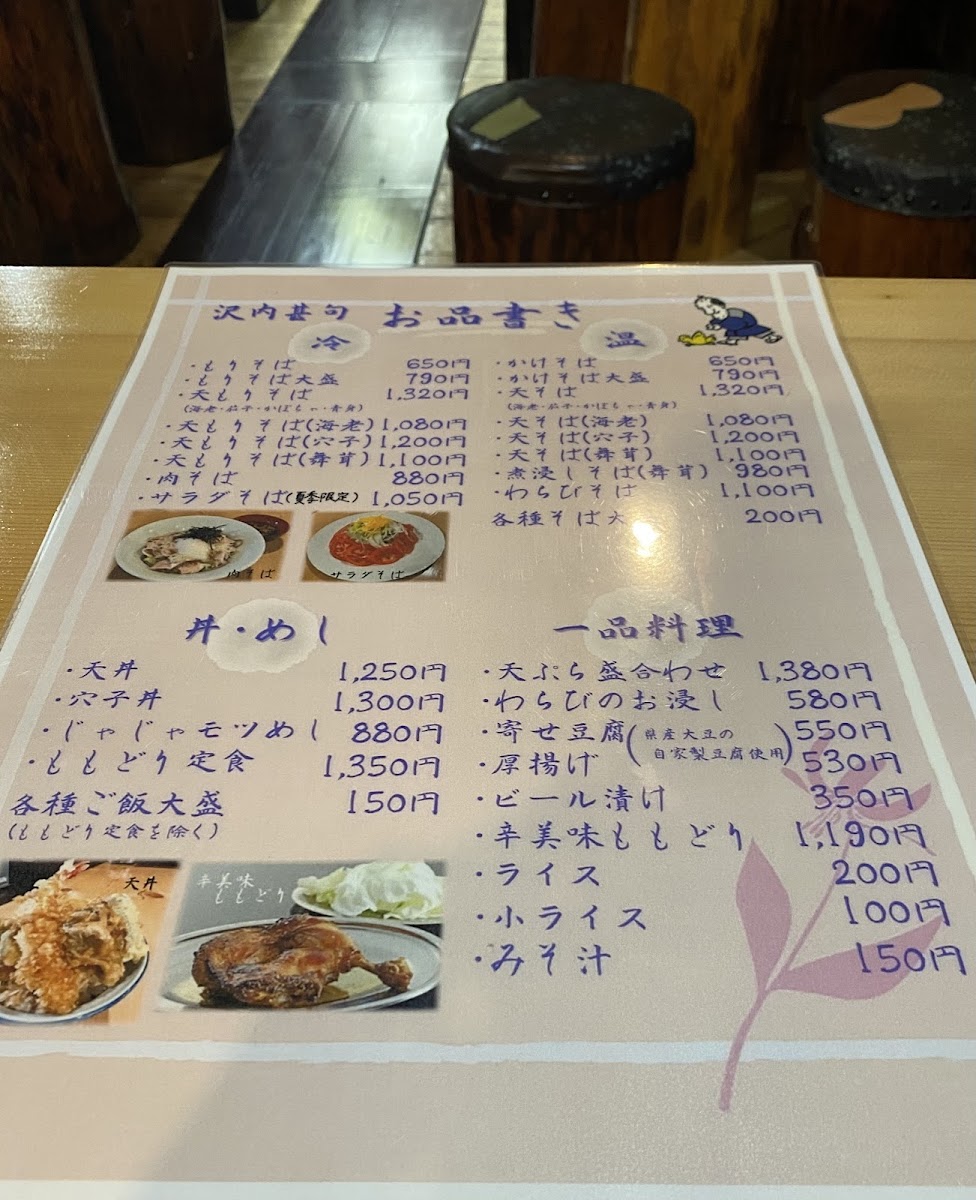 沢内甚句 お品書き
冷
・もりそば 650円
・もりそば大盛 790円
・天もりそば 1,320円
(海老・茄子・かぼちゃ・青身)
・天もりそば(海老) 1,080円
・天もりそば(穴子) 1,200円
・天もりそば(舞茸) 1,100円
・肉そば 880円
・サラダそば(夏季限定) 1,050円
肉そば
サラダそば
温
・かけそば 650円
・かけそば大盛 790円
・天そば 1,320円
(海老・茄子・かぼちゃ・青身)
・天そば(海老) 1,080円
・天そば(穴子) 1,200円
・天そば(舞茸) 1,100円
・煮浸しそば(舞茸) 980円
・わらびそば 1,100円
各種そば大 200円
丼・めし
・天丼 1,250円
・穴子丼 1,300円
・じゃじゃモツめし 880円
・ももどり定食 1,350円
各種ご飯大盛 150円
(ももどり定食を除く)
天丼
辛美味
ももどり
一品料理
・天ぷら盛合わせ 1,380円
・わらびのお浸し 580円
・寄せ豆腐 550円
(県産大豆の
自家製豆腐使用)
・厚揚げ 530円
・ビール漬け 350円
・辛美味ももどり 1,190円
・ライス 200円
・小ライス 100円
・みそ汁 150円